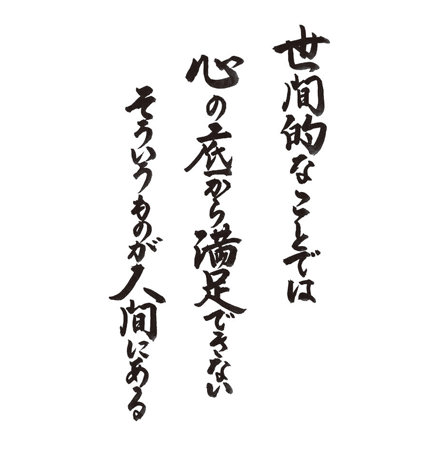 世間的なことでは
心の底から満足できない
そういうものが人間にある